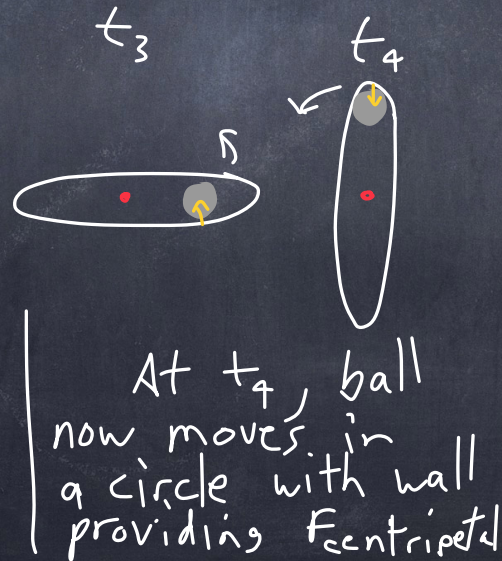 t₃
t₄
At t₄, ball
now moves in
a circle with wall
providing Fcentripetal